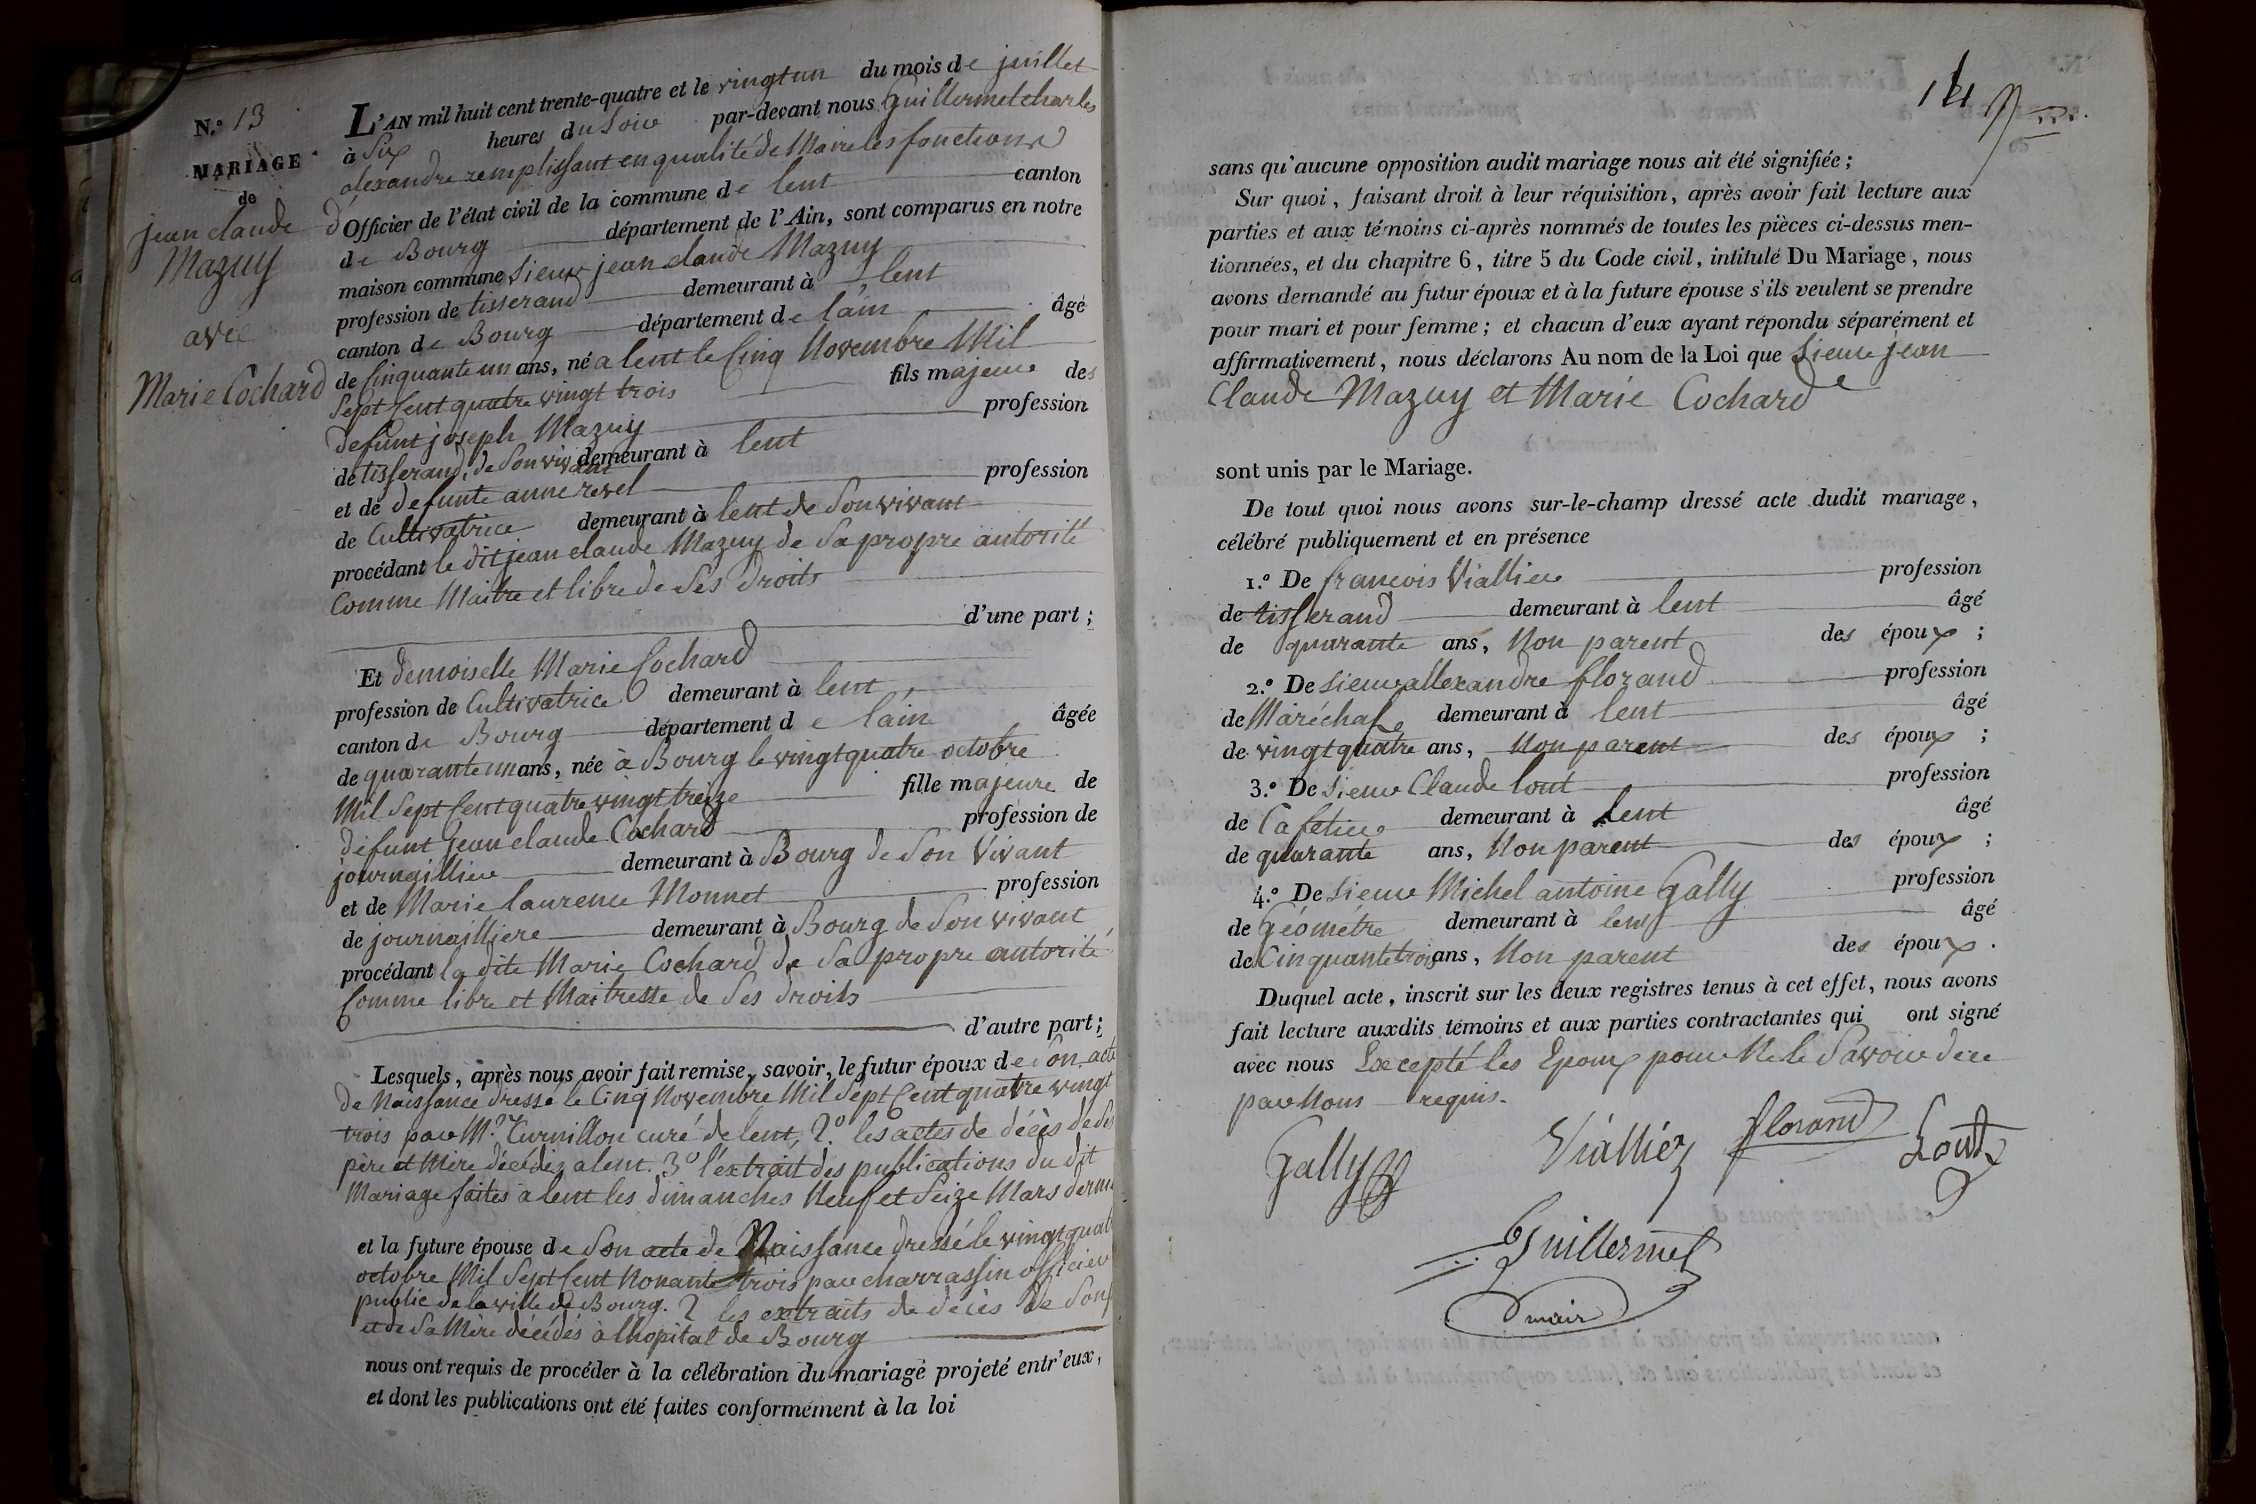 N.o 13
MARIAGE
de
jean claude
Mazuy
avec
Marie Cochard
L'AN mil huit cent trente-quatre et le vingt un du mois de juillet
à Six heures du Soir par-devant nous Guillermet charles
alexandre remplissant en qualité de Maire les fonctions
d'Officier de l'état civil de la commune de lent canton
de Bourg département de l'Ain, sont comparus en notre
maison commune Sieur jean claude Mazuy
profession de tisserand demeurant à lent
canton de Bourg département de l'ain âgé
de Cinquante un ans, né a lent le Cinq Novembre Mil
Sept Cent quatre vingt trois fils majeur des
defunt joseph Mazuy profession
de tisserand, de Son vivant demeurant à lent
et de defunte anne revel profession
de Cultivatrice demeurant à lent de Son vivant
procédant le dit jean claude Mazuy de Sa propre autorité
Comme Maitre et libre de Ses droits
d'une part ;
Et demoiselle Marie Cochard
profession de Cultivatrice demeurant à lent
canton de Bourg département de l'ain âgée
de quarante un ans, née à Bourg le vingt quatre octobre
Mil Sept Cent quatre vingt treize fille majeure de
défunt Jean claude Cochard profession de
journaillier demeurant à Bourg de Son Vivant
et de Marie laurence Monnet profession
de journailliere demeurant à Bourg de Son vivant
procédant la dite Marie Cochard de Sa propre autorité
Comme libre et Maitresse de Ses droits
d'autre part ;
Lesquels, après nous avoir fait remise, savoir, le futur époux de Son acte
de Naissance dressé le Cinq Novembre Mil Sept Cent quatre vingt
trois par Mr Turnillon curé de lent, 2o les actes de décès de Ses
père et Mère décédés a lent. 3o l'extrait des publications du dit
Mariage faites a lent les dimanches Neuf et Seize Mars dernier
et la future épouse de Son acte de Naissance dressé le vingt quatre
octobre Mil Sept Cent Nonante trois par charrassin officier
public de la ville de Bourg. 2 les extraits de décès de Son
et de Sa Mère décédés à l'hopital de Bourg
nous ont requis de procéder à la célébration du mariage projeté entr'eux,
et dont les publications ont été faites conformément à la loi
sans qu'aucune opposition audit mariage nous ait été signifiée ;
Sur quoi, faisant droit à leur réquisition, après avoir fait lecture aux
parties et aux témoins ci-après nommés de toutes les pièces ci-dessus men-
tionnées, et du chapitre 6, titre 5 du Code civil, intitulé Du Mariage, nous
avons demandé au futur époux et à la future épouse s'ils veulent se prendre
pour mari et pour femme ; et chacun d'eux ayant répondu séparément et
affirmativement, nous déclarons Au nom de la Loi que Sieur jean
Claude Mazuy et Marie Cochard
sont unis par le Mariage.
De tout quoi nous avons sur-le-champ dressé acte dudit mariage,
célébré publiquement et en présence
1.o De francois Viallier profession
de tisserand demeurant à lent âgé
de quarante ans, Non parent des époux ;
2.o De Sieur allexandre florand profession
de Maréchal demeurant à lent âgé
de vingt quatre ans, Non parent des époux ;
3.o De Sieur Claude lout profession
de Cafetier demeurant à lent âgé
de quarante ans, Non parent des époux ;
4.o De Sieur Michel antoine Gally profession
de Géomètre demeurant à lent âgé
de Cinquante trois ans, Non parent des époux.
Duquel acte, inscrit sur les deux registres tenus à cet effet, nous avons
fait lecture auxdits témoins et aux parties contractantes qui ont signé
avec nous Excepté les Epoux pour Ne le Savoir de ce
par Nous requis.
Gally Viallier florand Lout
Guillermet
maire